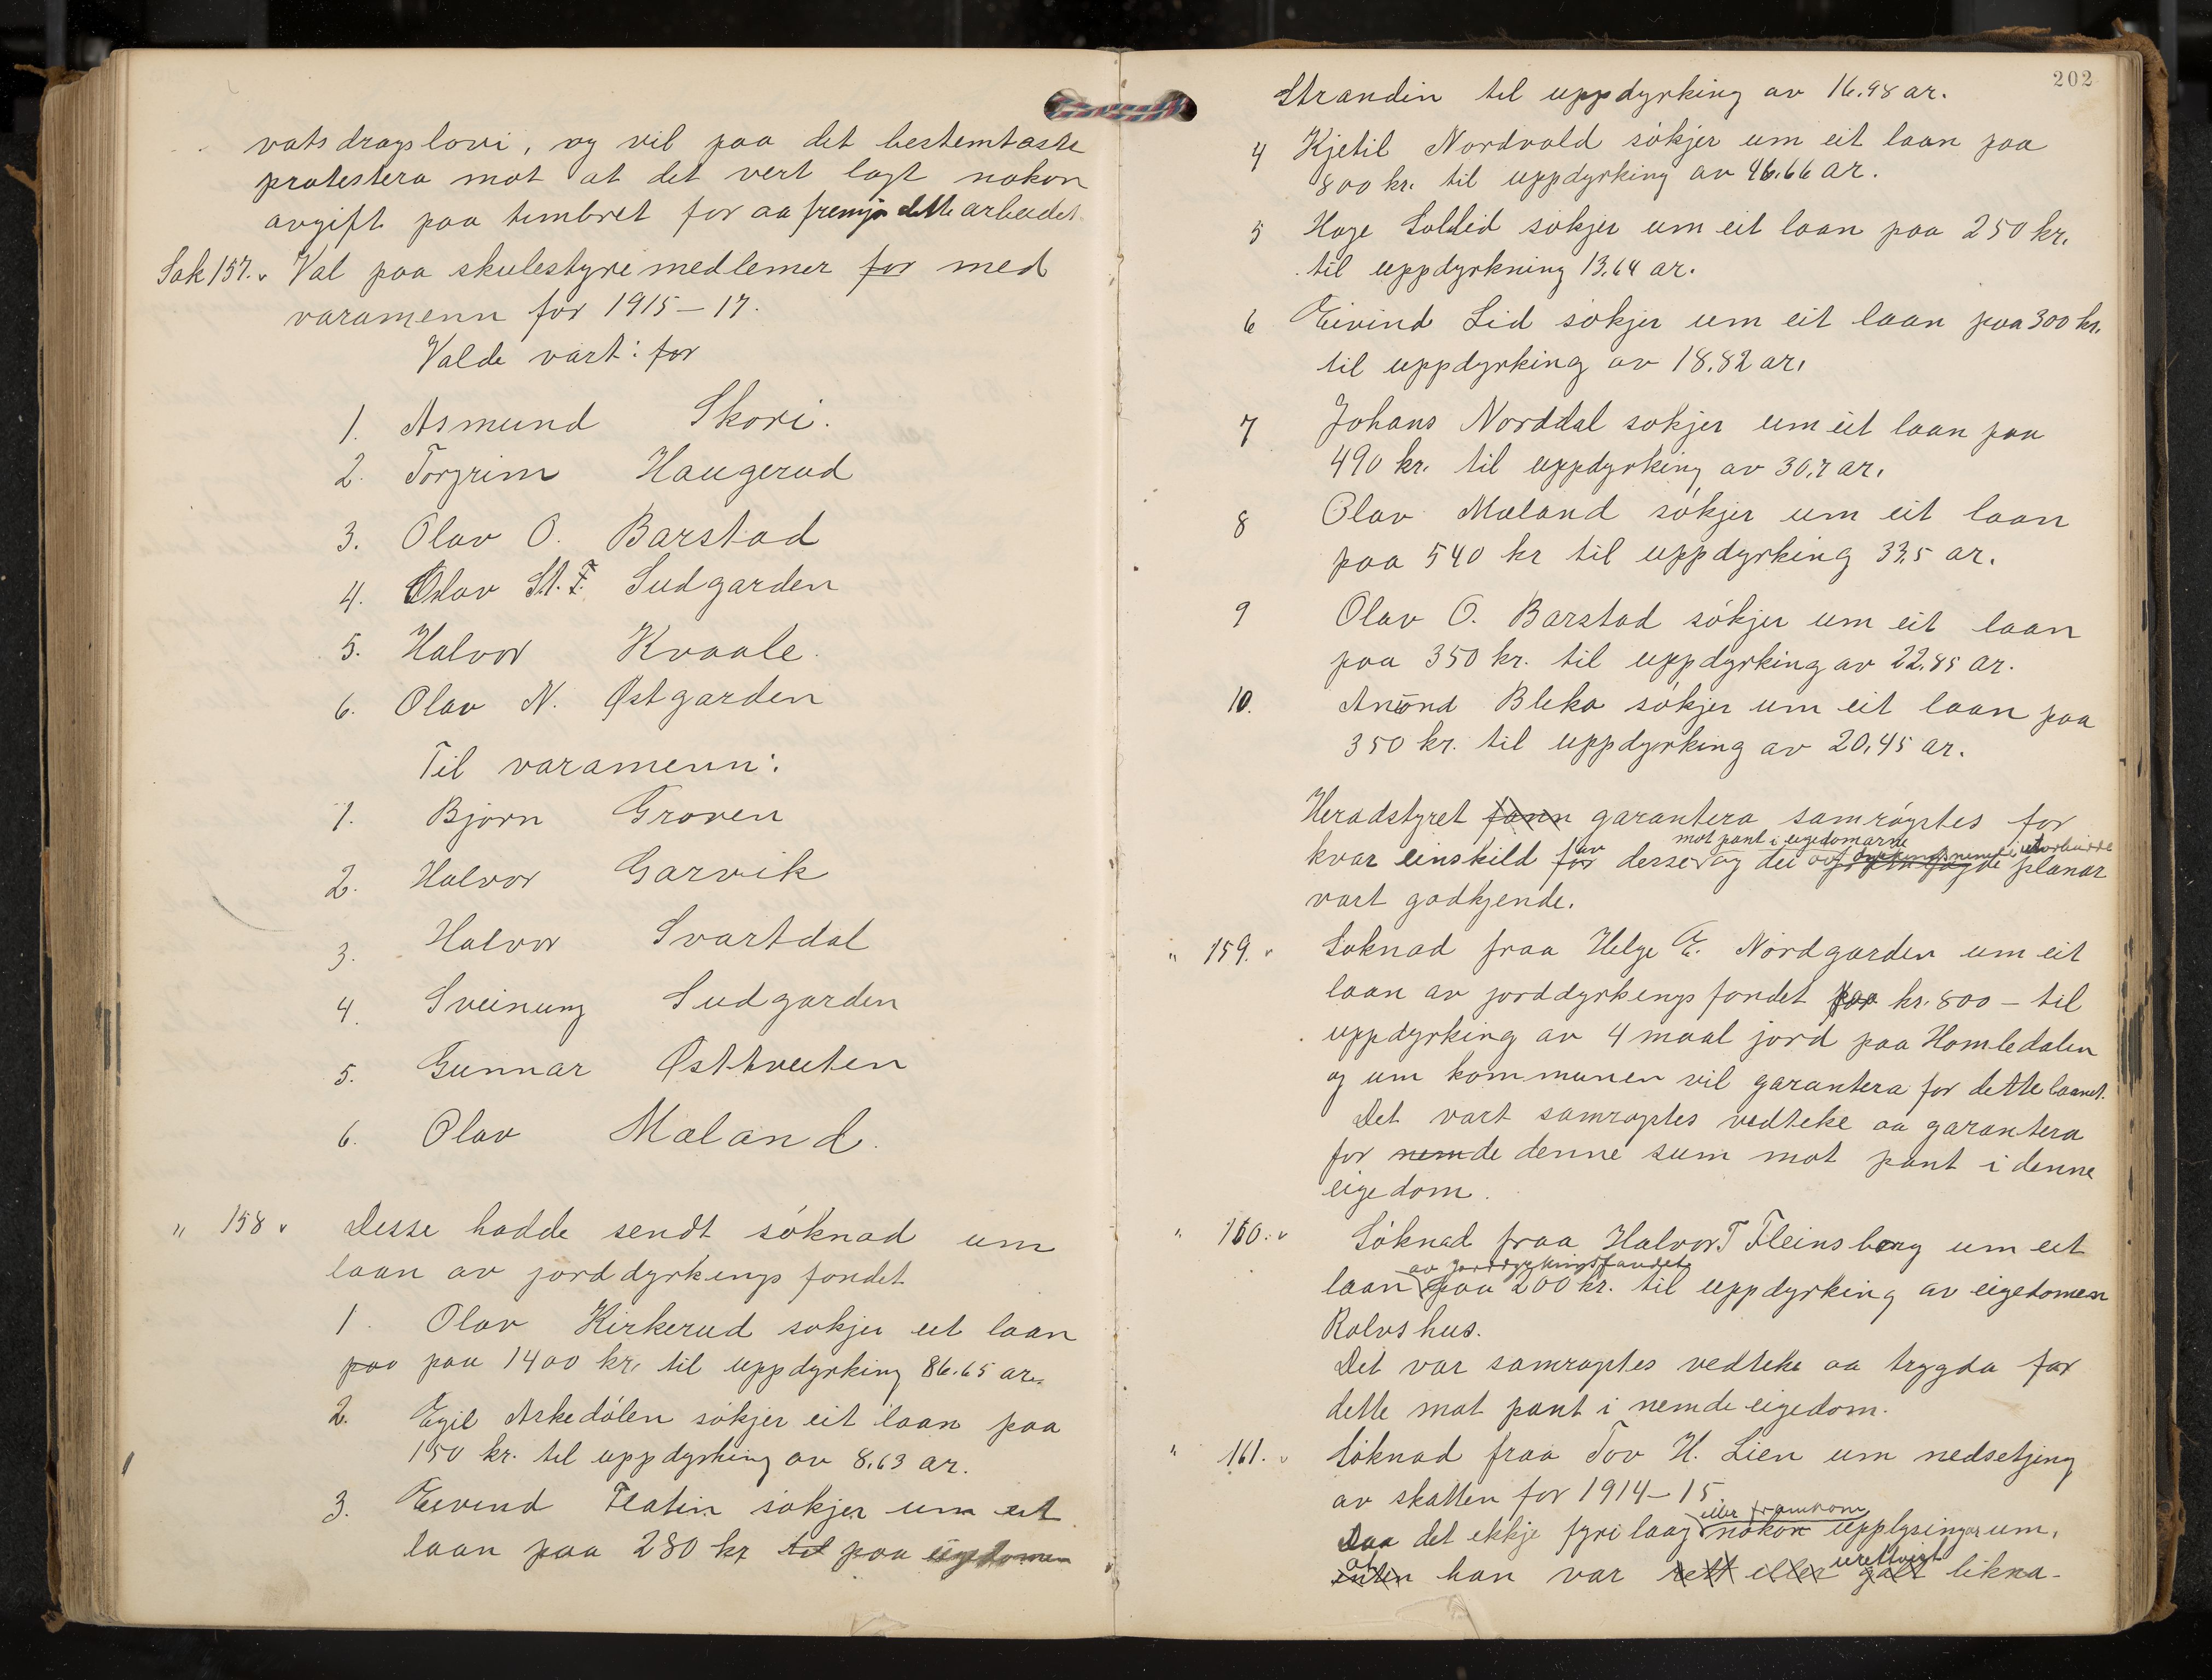 vatsdragslovi, og vil paa det bestemtaste
protestera mot at det vert lagt nokon
avgift paa timbret for aa fremja dette arbeidet.
Sak 157. Val paa skulestyremedlemer for med
varamenn for 1915–17.
Valde vart: for
1. Asmund Skori.
2. Torgrim Haugerud
3. Olav O. Barstad
4. Olav St. T. Sudgarden
5. Halvor Kvaale.
6. Olav N. Østgarden
Til varamenn:
1. Bjørn Groven
2. Halvor Garvik
3. Halvor Svartdal
4. Sveinung Sudgarden
5. Gunnar Østtveiten
6. Olav Mæland.
" 158 Desse hadde sendt søknad um
laan av jorddyrkings fondet
1. Olav Kirkerud søkjer eit laan
paa paa 1400 kr. til uppdyrking 86.65 ar.
2. Egil Askedalen søkjer eit laan paa
150 kr. til uppdyrking av 8,63 ar.
3. Eivind Flatin søkjer um eit
laan paa 280 kr til paa eigedomen
202
Strandin til uppdyrking av 16.98 ar.
4 Kjetil Nordvald søkjer um eit laan paa
800 kr. til uppdyrking av 46.66 ar.
5 Hage Sollid søkjer um eit laan paa 250 kr.
til uppdyrkning 13.64 ar.
6 Eivind Lid søkjer um eit laan paa 300 kr.
til uppdyrking av 18.82 ar.
7 Johans Norddal søkjer um eit laan paa
490 kr. til uppdyrking av 30,7 ar.
8 Olav Mæland søkjer um eit laan
paa 540 kr til uppdyrking 33,5 ar.
9 Olav O. Barstad søkjer um eit laan
paa 350 kr. til uppdyrking av 22.85 ar.
10. Anund Bleka søkjer um eit laan paa
350 kr. til uppdyrking av 20,45 ar.
Heradstyret fann garantera samrøystes for
mot pant i eigedomarne
kvar einskild for av desse og dei av dyrkingsnemdi planar
vart godkjende.
" 159. Søknad fraa Helge E. Nordgarden um eit
laan av jorddyrkings fondet paa kr. 800 – til
uppdyrking av 4 maal jord paa Homledalen
og um kommunen vil garantera for dette laanet.
Det vart samrøystes vedteke aa garantera
for nemde denne sum mot pant i denne
eigedom.
" 160. Søknad fraa Halvor T Fleinsberg um eit
av jorddyrkingsfondet
laan paa 200 kr. til uppdyrking av eigedomen
Rolvshus.
Det var samrøystes vedteke aa trygda for
dette mot pant i nemde eigedom.
" 161. Søknad fraa Tov H. Lien um nedsetjing
av skatten for 1914–15.
eller framkom
Daa det ekkje fyri laag nokon upplysingar um,
at urettvist
enten han var rett eller galt likna-